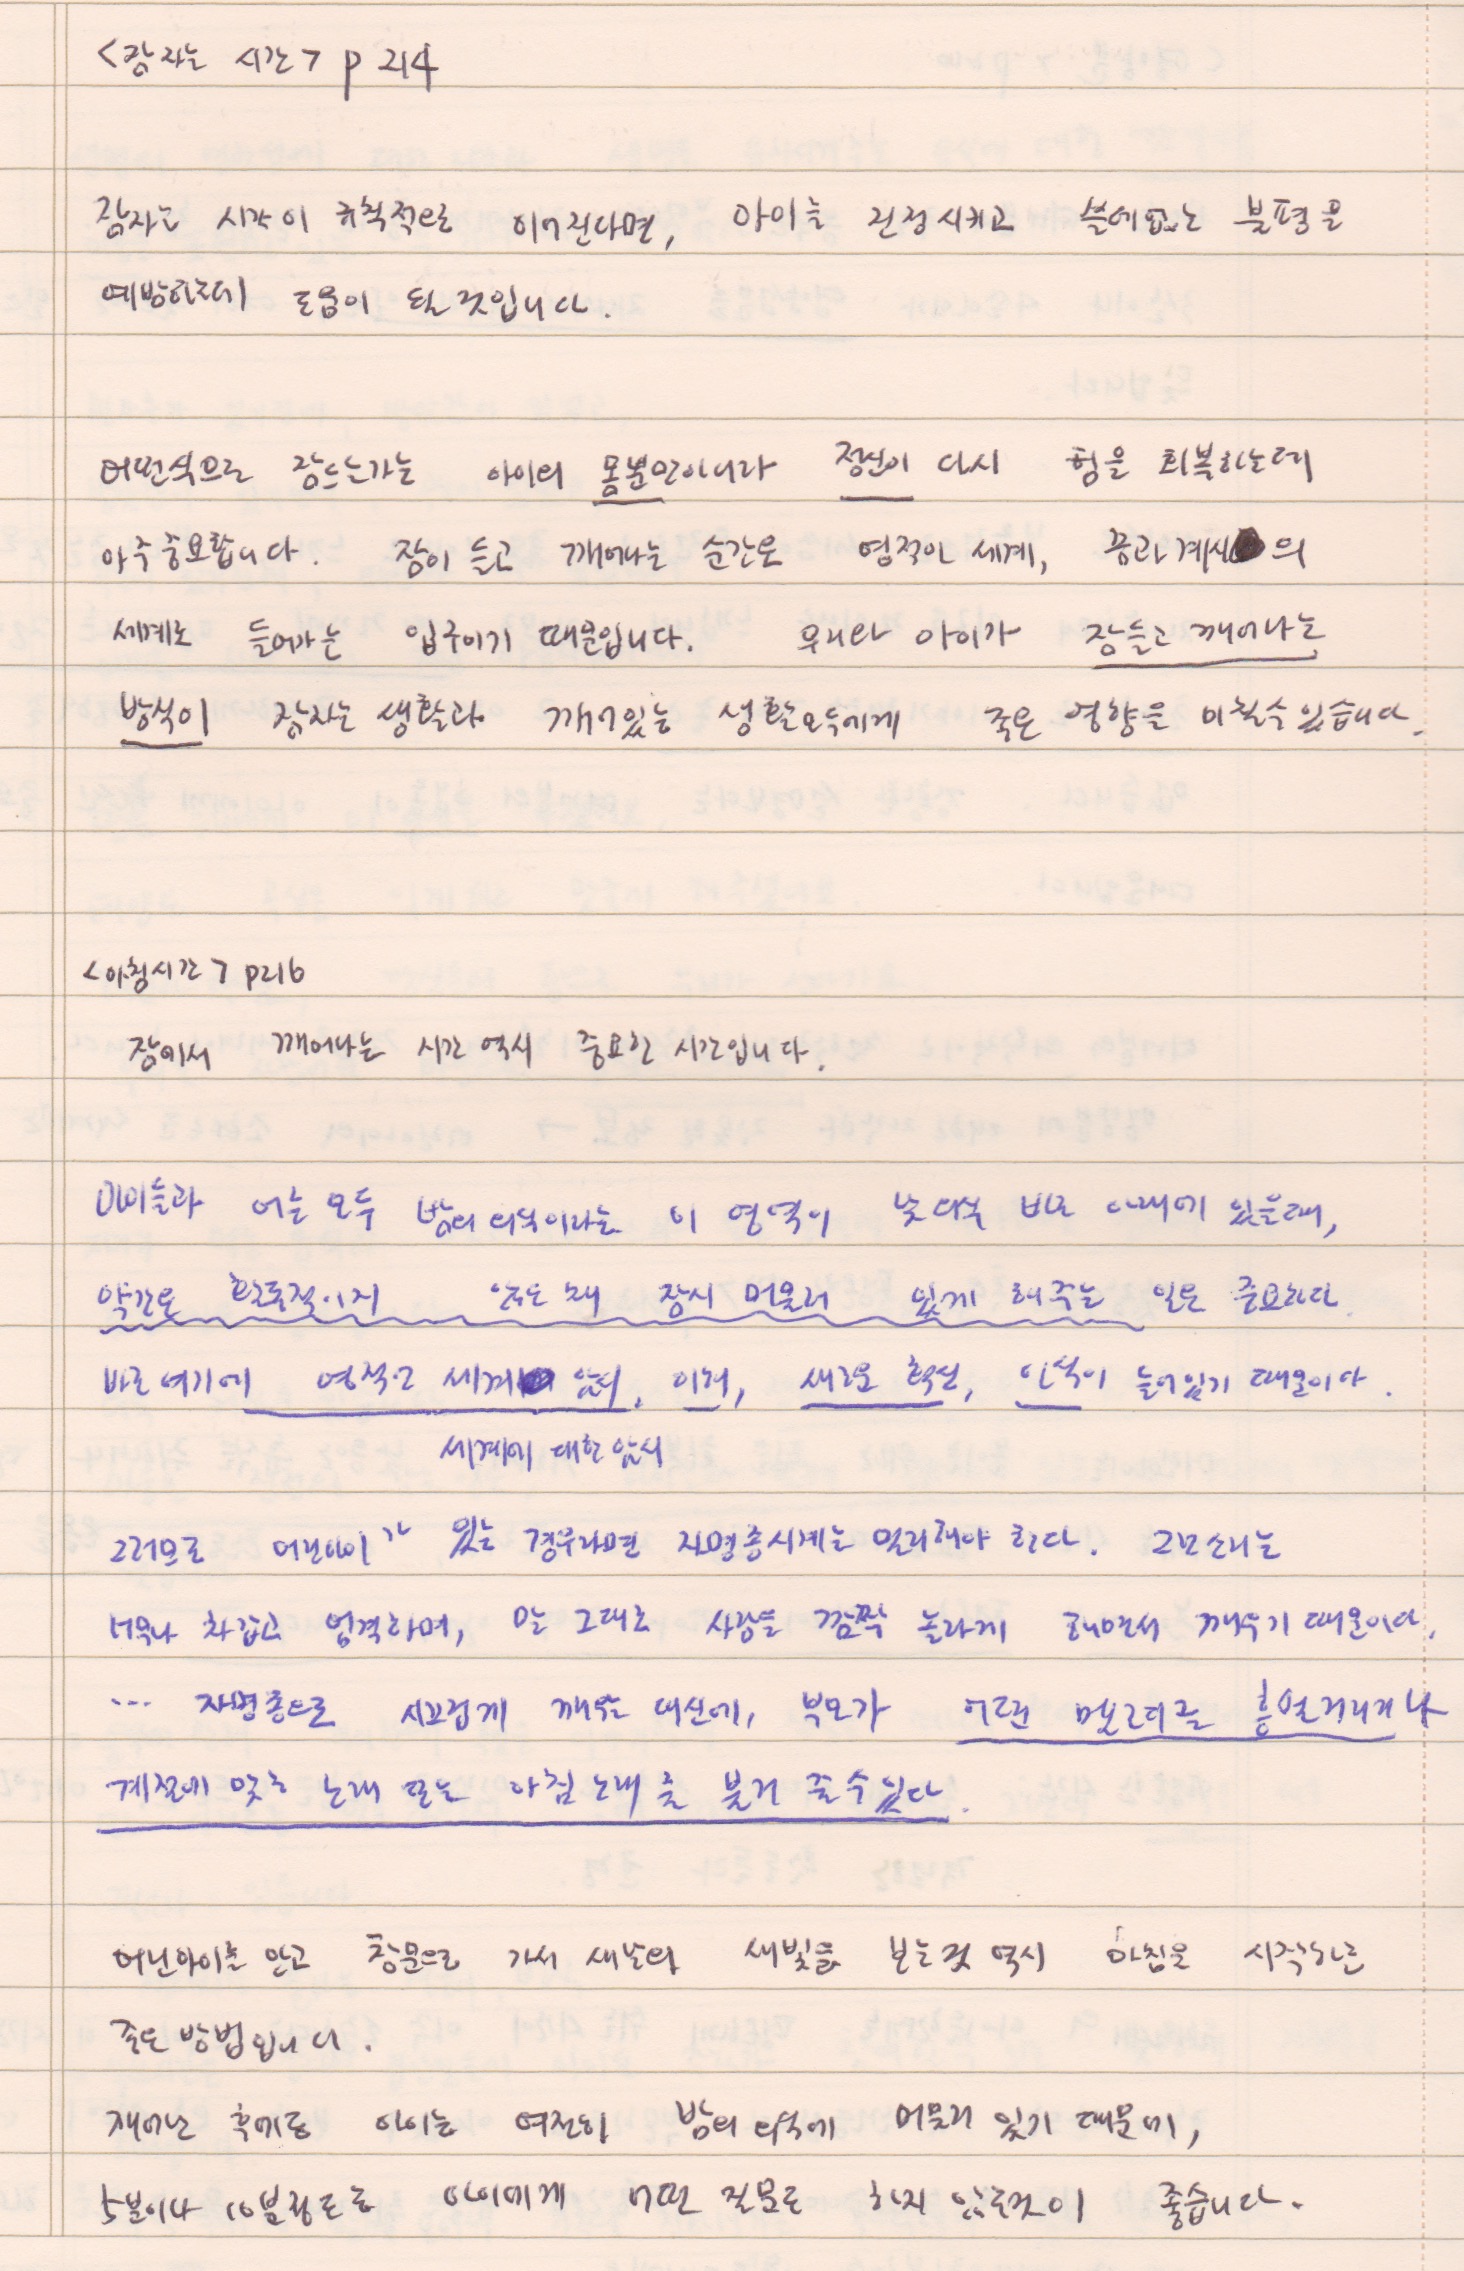 <잠자는 시간> p 214
잠자는 시각이 규칙적으로 이어진다면, 아이를 진정시키고 쓸데없는 불평을
예방하는데 도움이 될 것입니다.
어떤식으로 잠드는가는 아이의 몸뿐만아니라 정신이 다시 힘을 회복하는데
아주 중요합니다. 잠이 들고 깨어나는 순간은 영적인 세계, 꿈과 계시의
세계로 들어가는 입구이기 때문입니다. 우리와 아이가 잠들고 깨어나는
방식이 잠자는 생활과 깨어있는 생활 모두에게 좋은 영향을 미칠수 있습니다.
<아침시간> p216
잠에서 깨어나는 시간 역시 중요한 시간입니다.
아이들과 어른 모두 밤의 의식이라는 이 영역이 낮 의식 바로 아래에 있을때,
약간은 활동적이지 않은 채 잠시 머물러 있게 해주는 일은 중요하다.
바로 여기에 영적인 세계 암시, 이해, 새로운 확신, 인식이 들어있기 때문이다.
세계에 대한 암시
그러므로 어린아이가 있는 경우라면 자명종시계는 멀리해야 한다. 그 소리는
너무나 차갑고 엄격하며, 말 그대로 사람을 깜짝 놀라게 하면서 깨우기 때문이다.
... 자명종으로 시끄럽게 깨우는 대신에, 부모가 어떤 멜로디를 흥얼거리거나
계절에 맞는 노래 또는 아침 노래를 불러 줄 수 있다.
어린아이를 안고 창문으로 가서 새날의 새빛을 보는 것 역시 아침을 시작하는
좋은 방법입니다.
깨어난 후에도 아이는 여전히 밤의 의식에 머물러 있기 때문에,
5분이나 10분정도는 아이에게 어떤 질문도 하지 않는것이 좋습니다.